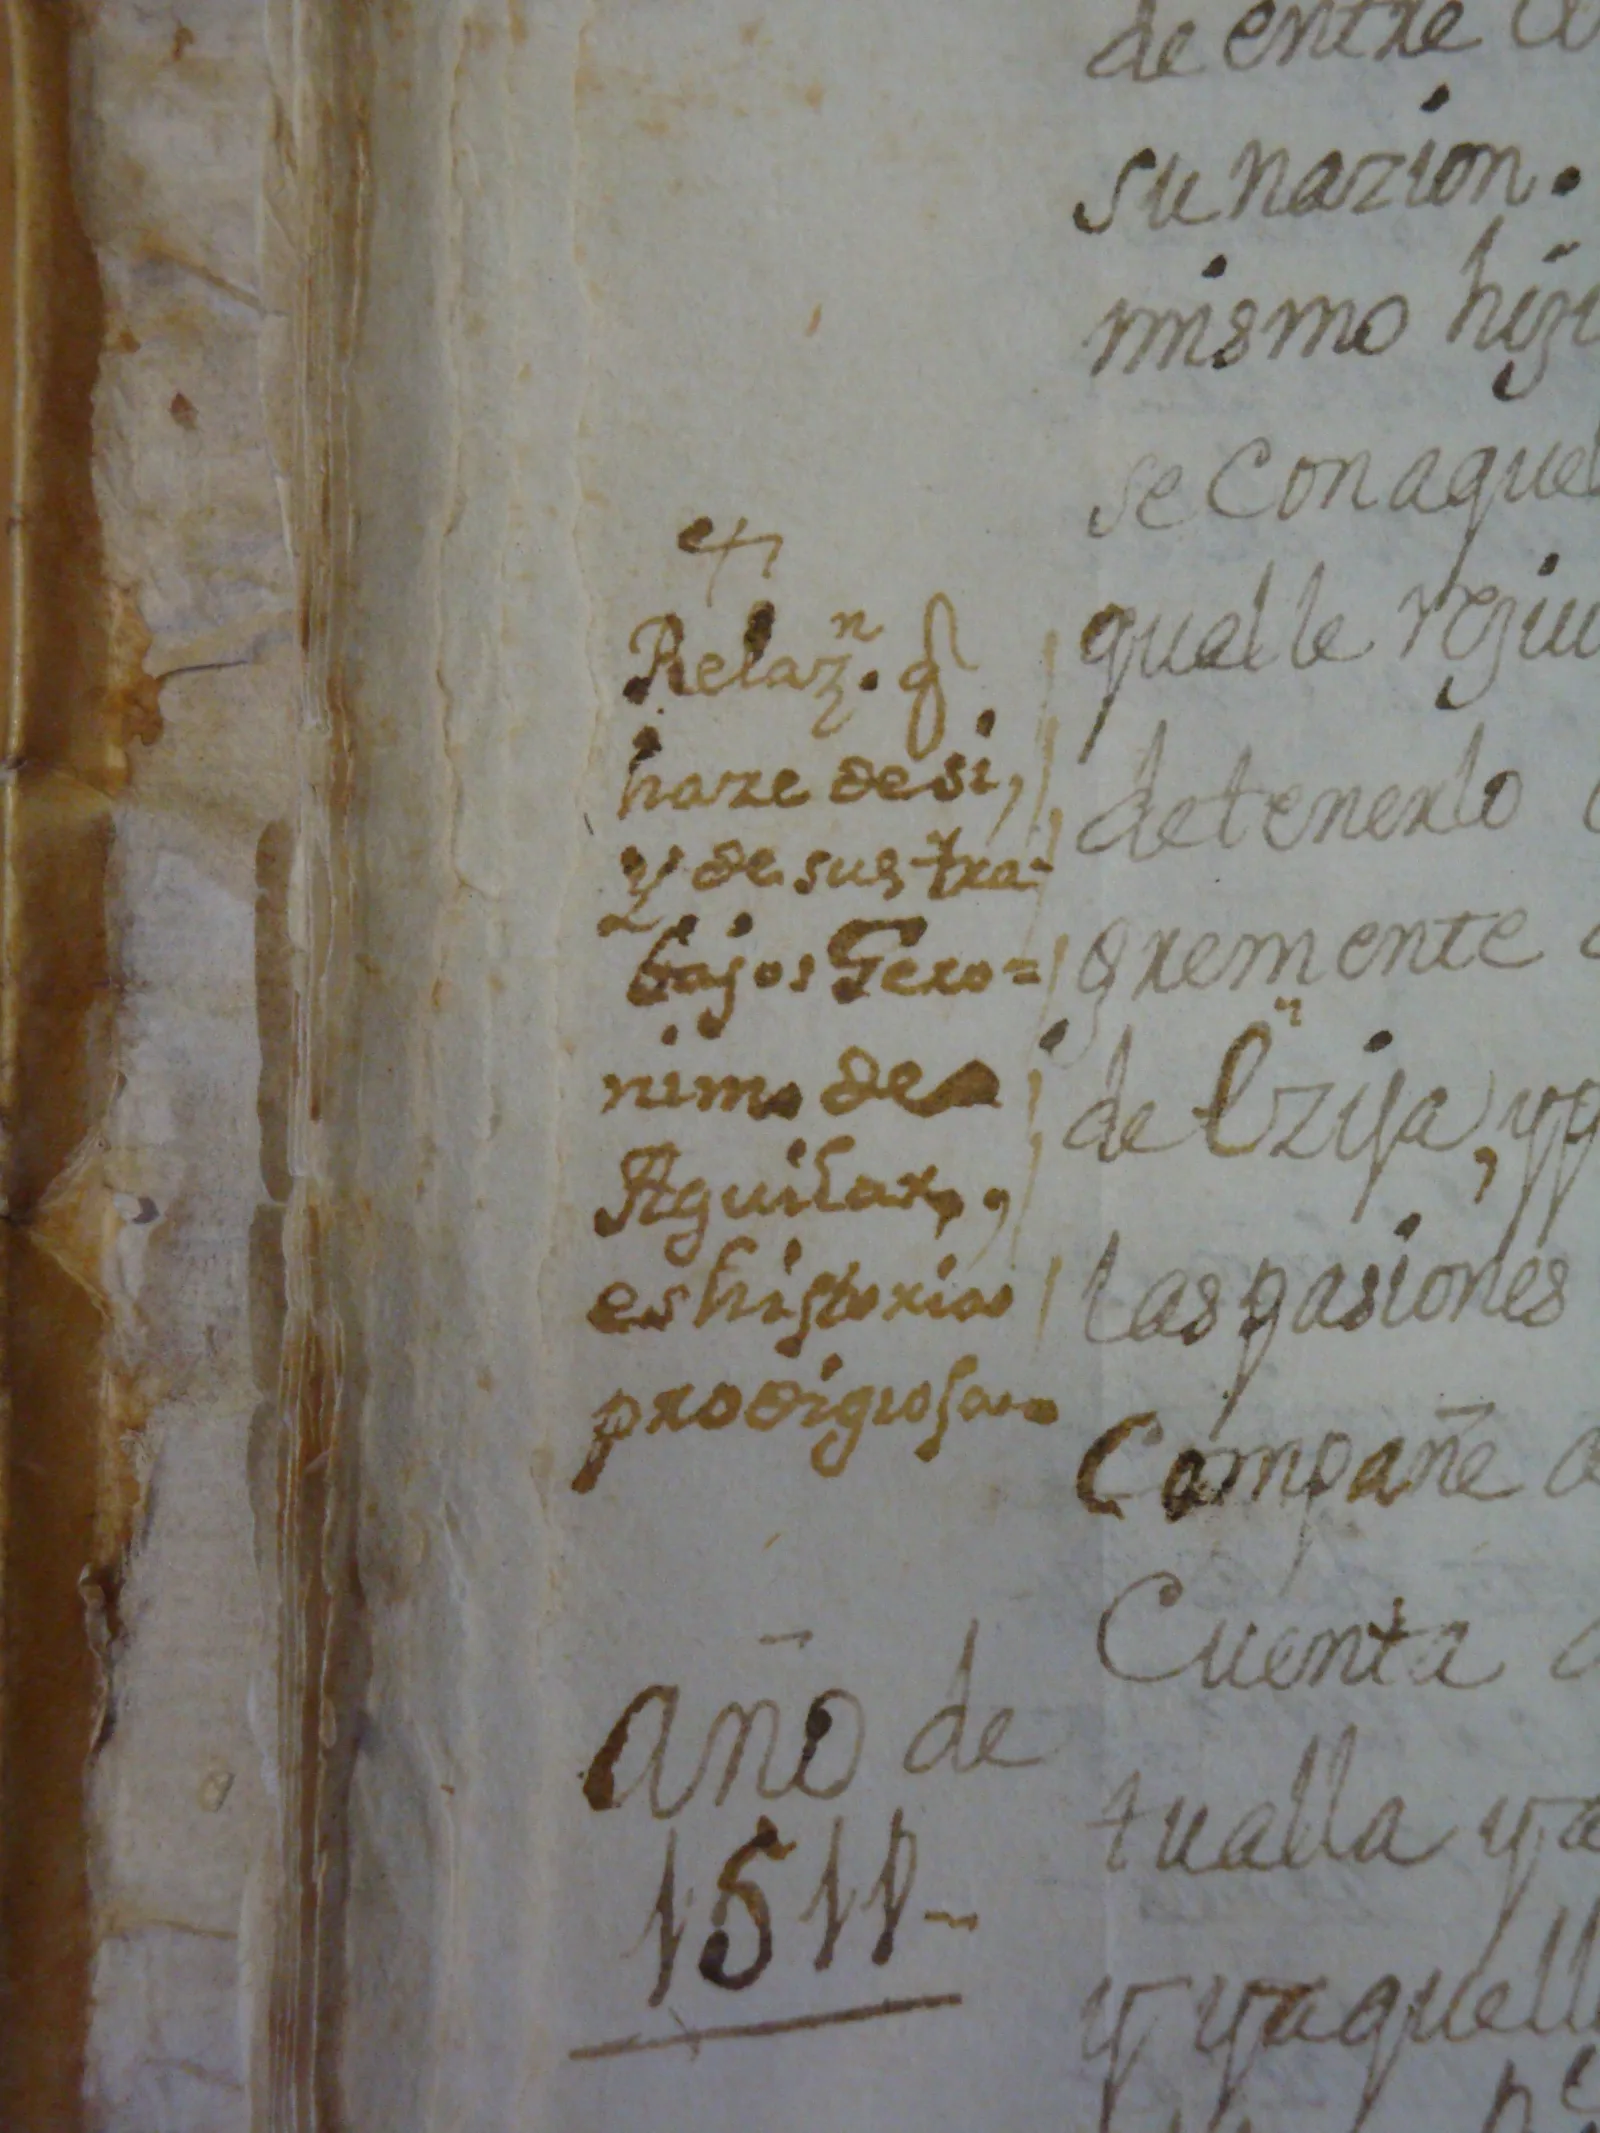 Relaz.ⁿ q
haze de si,
y de sus tra-
bajos Gero=
nimo de
Aguilar,,
es historia
prodigiosa.
año de
1511-
de entre
su nazion.
mismo hizo
se con aquel
qual le
detenerlo
gremente
de Ezija, y
las pasiones
Compañe
Cuenta
tualla y
y ya quell